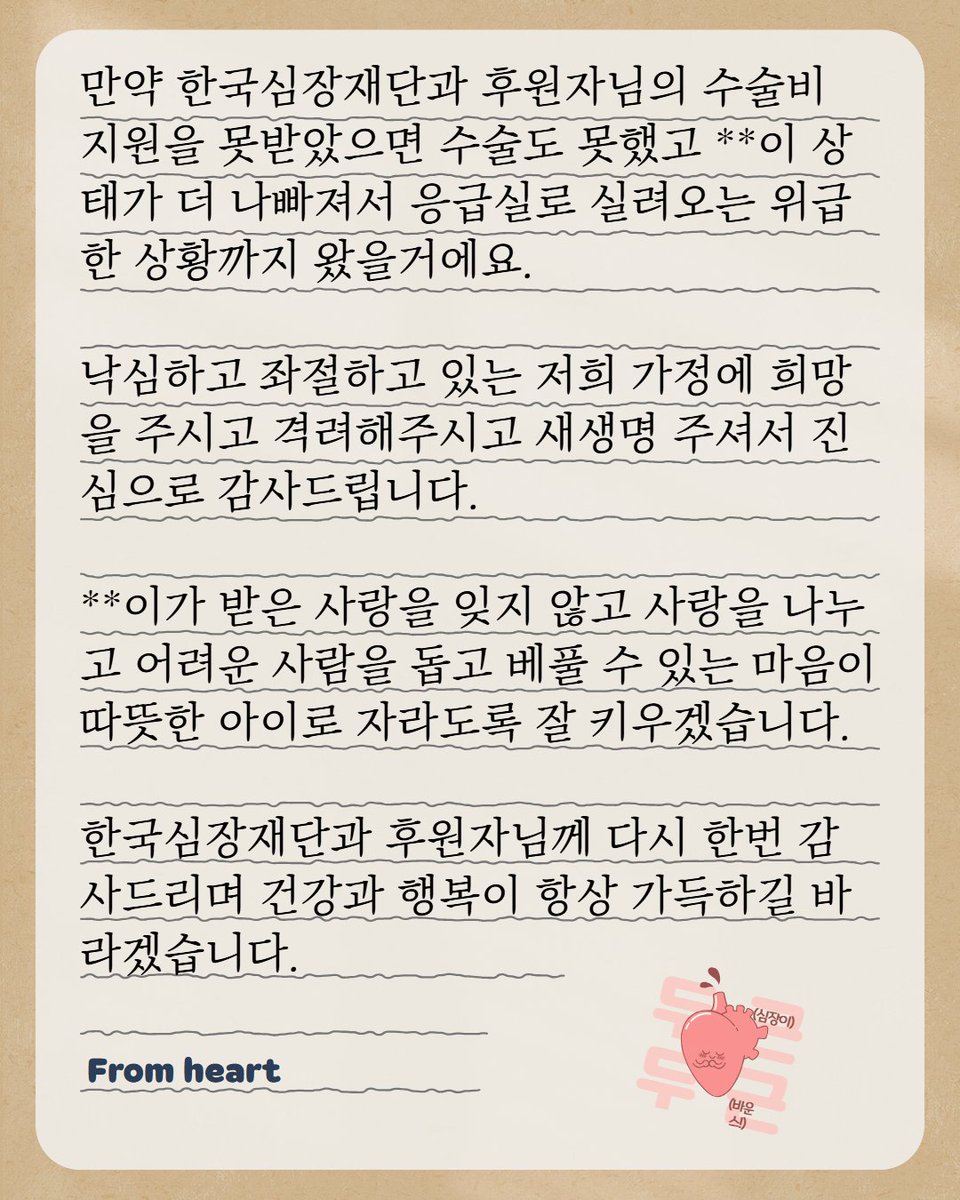 만약 한국심장재단과 후원자님의 수술비
지원을 못받았으면 수술도 못했고 **이 상
태가 더 나빠져서 응급실로 실려오는 위급
한 상황까지 왔을거에요.
낙심하고 좌절하고 있는 저희 가정에 희망
을 주시고 격려해주시고 새생명 주셔서 진
심으로 감사드립니다.
**이가 받은 사랑을 잊지 않고 사랑을 나누
고 어려운 사람을 돕고 베풀 수 있는 마음이
따뜻한 아이로 자라도록 잘 키우겠습니다.
한국심장재단과 후원자님께 다시 한번 감
사드리며 건강과 행복이 항상 가득하길 바
라겠습니다.
From heart
두근
(심장이)
두근
(바운
스)